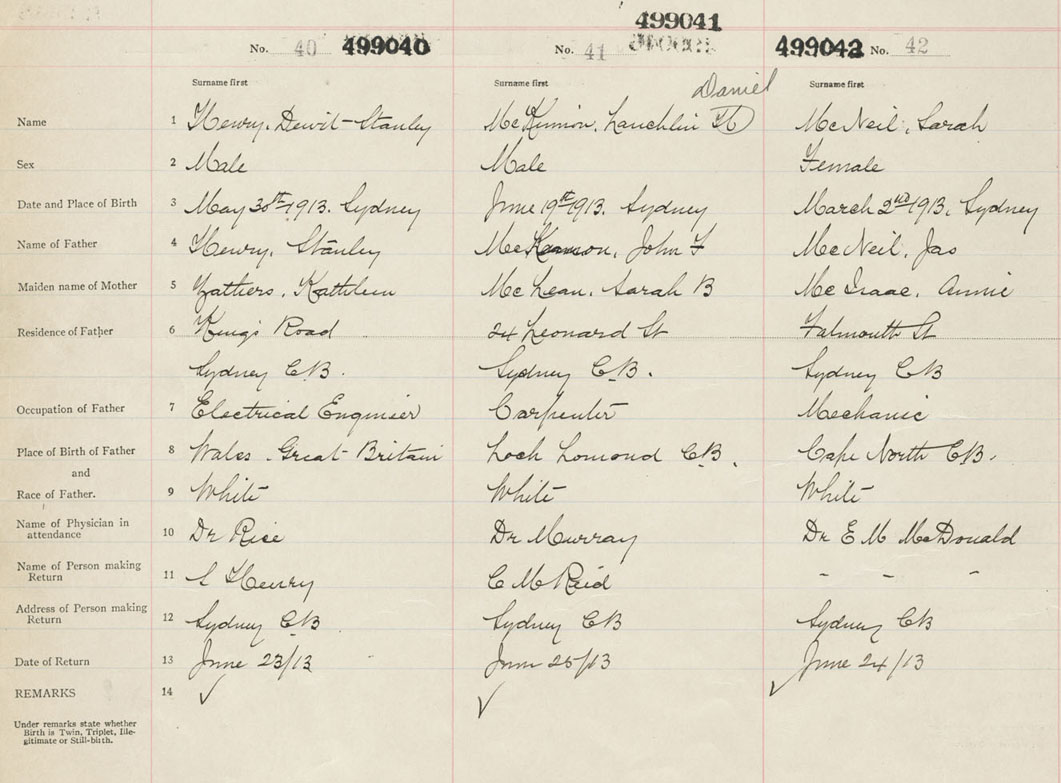 499041
No. 40 499040 No. 41 499042 No. 42
Surname first Surname first Daniel Surname first
Name 1 Henry, Dewit-Stanley McKinnon, Lauchlin McNeil, Sarah
Sex 2 Male Male Female
Date and Place of Birth 3 May 30th 1913. Sydney June 19th 1913. Sydney March 2nd 1913, Sydney
Name of Father 4 Henry, Stanley McKinnon, John F McNeil, Jas
Maiden name of Mother 5 Kathleen McLean, Sarah B McIsaac, Annie
Residence of Father 6 Kings Road 24 Leonard St Falmouth St
Sydney C.B. Sydney C.B. Sydney CB
Occupation of Father 7 Electrical Engineer Carpenter Mechanic
Place of Birth of Father 8 Wales. Great-Britain Loch Lomond C.B. Cape North C.B.
and
Race of Father. 9 White White White
Name of Physician in
attendance 10 Dr Rice Dr Murray Dr E M McDonald
Name of Person making
Return 11 Henry C M Reid - - -
Address of Person making
Return 12 Sydney C.B Sydney CB Sydney CB
Date of Return 13 June 23/13 June 25/13 June 24/13
REMARKS 14 ✓ ✓ ✓
Under remarks state whether
Birth is Twin, Triplet, Ille-
gitimate or Still-birth.